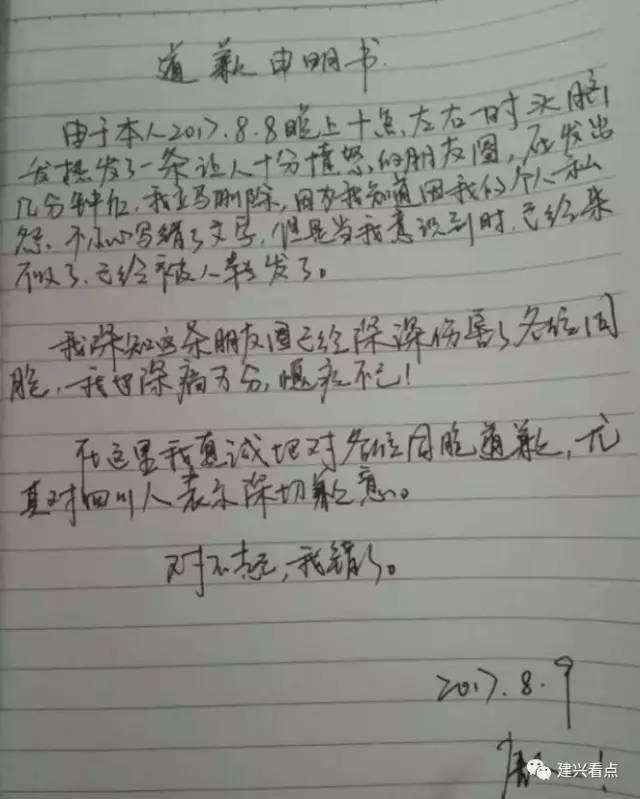 道歉申明书
由于本人2017.8.8晚上十点左右一时头脑
发热发了一条让人十分愤怒的朋友圈,在发出
几分钟后,我立马删除,因为我知道因我的个人私
怨,不小心写错了文字,但是当我意识到时,已经来
不及了,已经被人转发了。
我深知这条朋友圈已经深深伤害了各位同
胞,我也深痛万分,愧疚不已!
在这里我真诚地对各位同胞道歉,尤
其对四川人表示深切歉意。
对不起,我错了。
2017.8.9
!
建兴看点